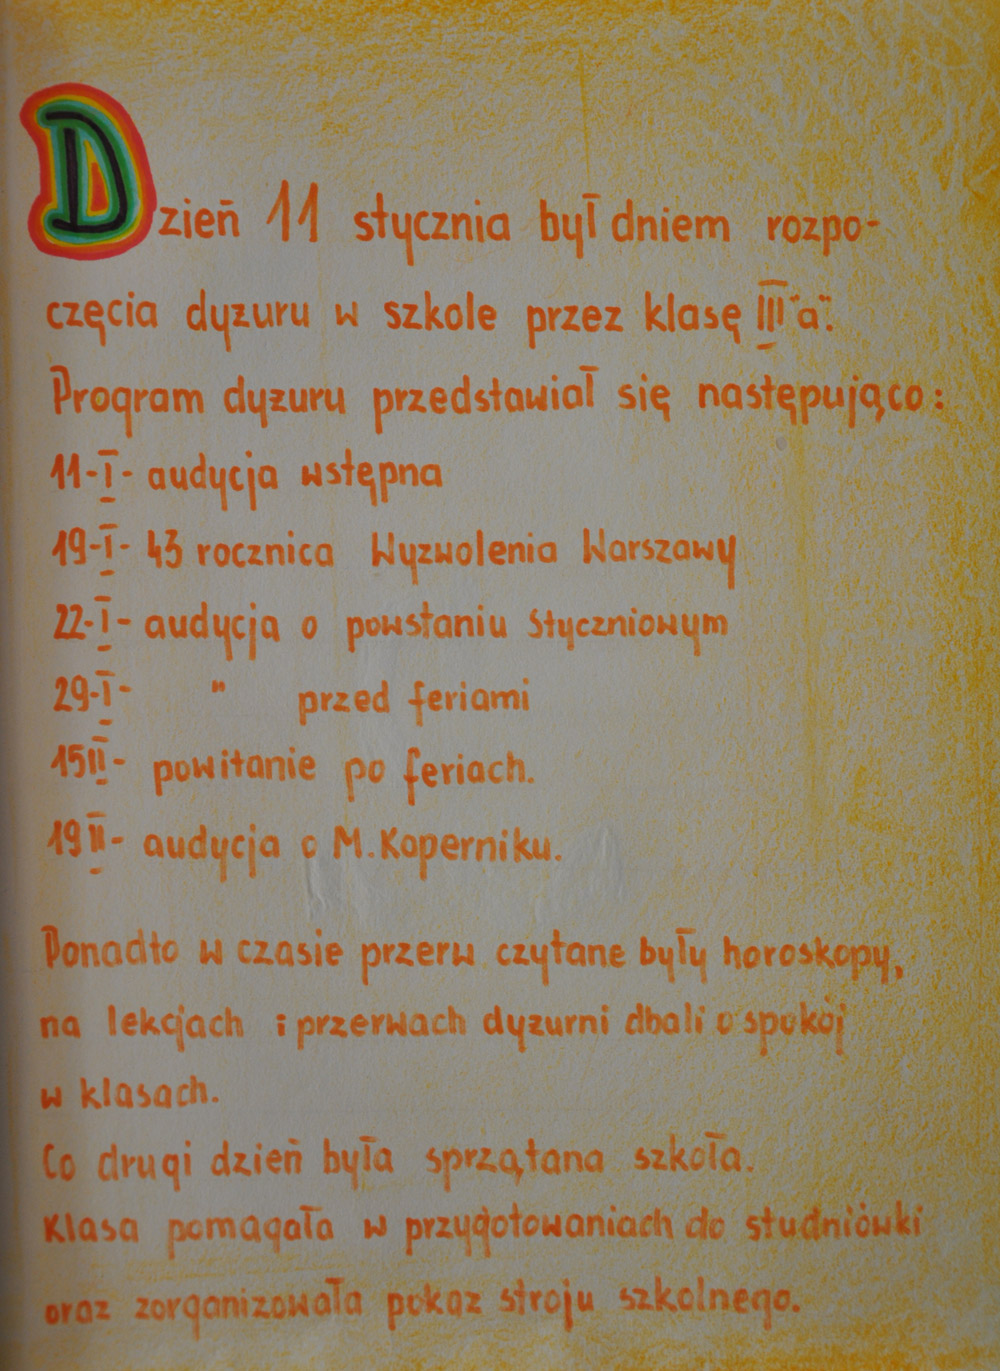 Dzień 11 stycznia był dniem rozpo-
częcia dyżuru w szkole przez klasę III "a".
Program dyżuru przedstawiał się następująco:
11-I- audycja wstępna
19-I- 43 rocznica Wyzwolenia Warszawy
22-I- audycja o powstaniu Styczniowym
29-I- " przed feriami
15 II- powitanie po feriach.
19 II- audycja o M. Koperniku.
Ponadto w czasie przerw czytane były horoskopy,
na lekcjach i przerwach dyżurni dbali o spokój
w klasach.
Co drugi dzień była sprzątana szkoła.
Klasa pomagała w przygotowaniach do studniówki
oraz zorganizowała pokaz stroju szkolnego.